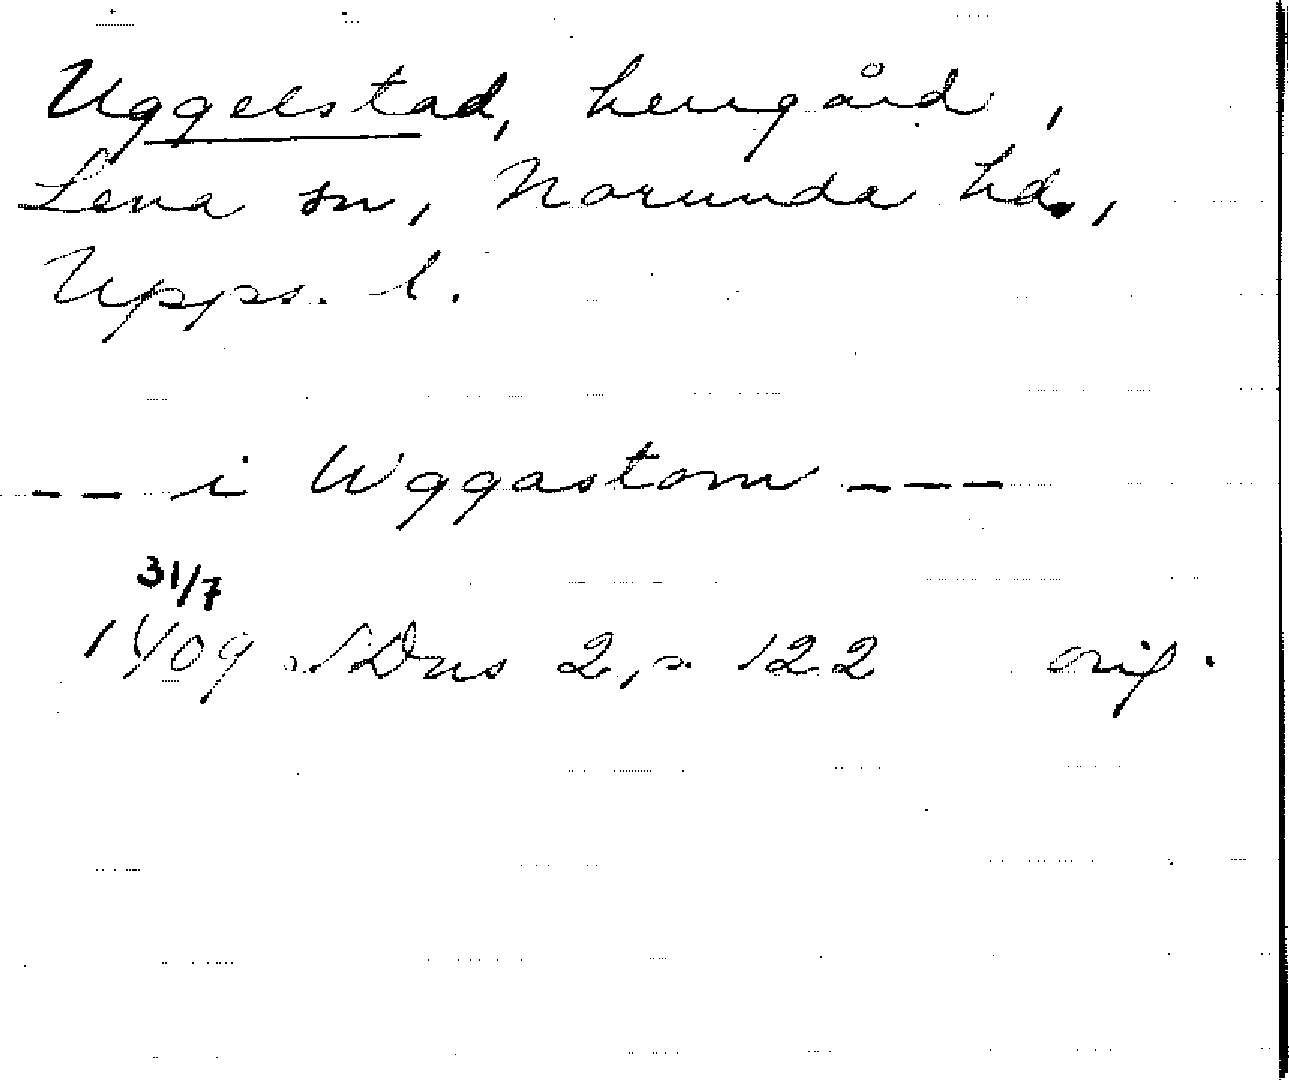 Uggelstad, herrgård,
Lena sn, Norunda hd.,
Upps. l.
-- i Wggastom ---
31/7
1409 SDns 2, s. 122 orig.